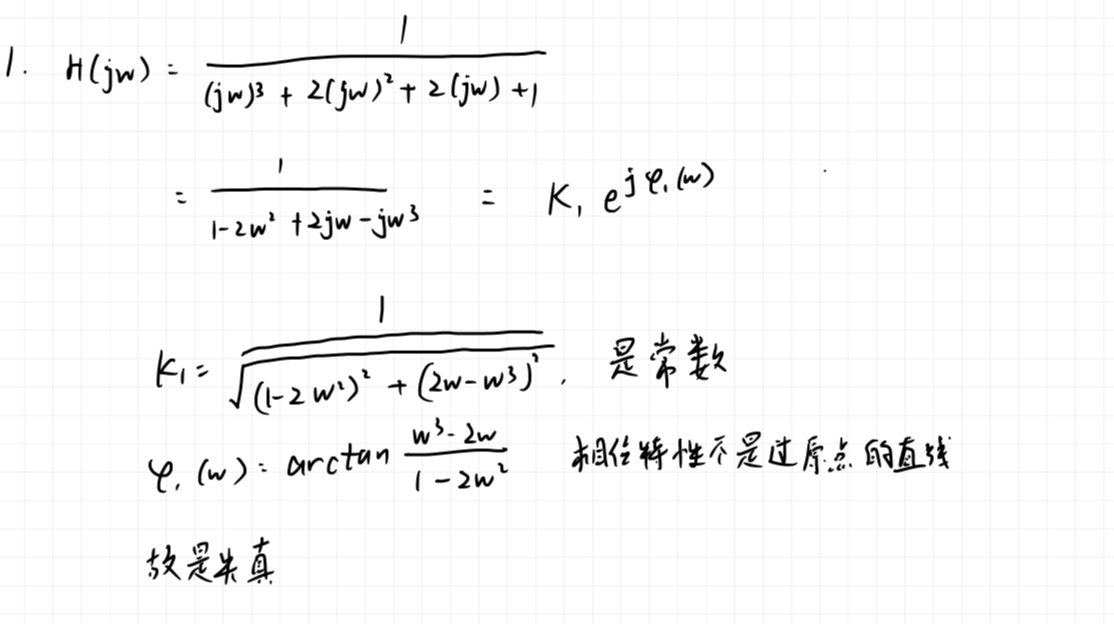 1. H(jw) = 1 / ((jw)³ + 2(jw)² + 2(jw) + 1)
= 1 / (1-2w² + 2jw - jw³) = K₁ e^{jφ₁(w)}
K₁ = 1 / √((1-2w²)² + (2w-w³)²), 是常数
φ₁(w) = arctan (w³-2w) / (1-2w²) 相位特性不是过原点的直线
故是失真